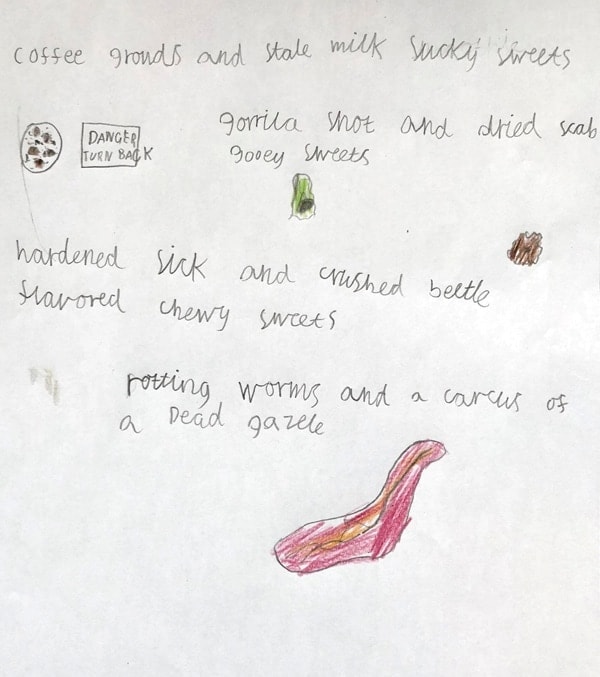 coffee grouds and stale milk sucky sweets
DANGER
TURN BACK
gorrila snot and dried scab
gooey sweets
hardened sick and crushed beetle
flavored chewy sweets
rotting worms and a carcus of
a Dead gazele